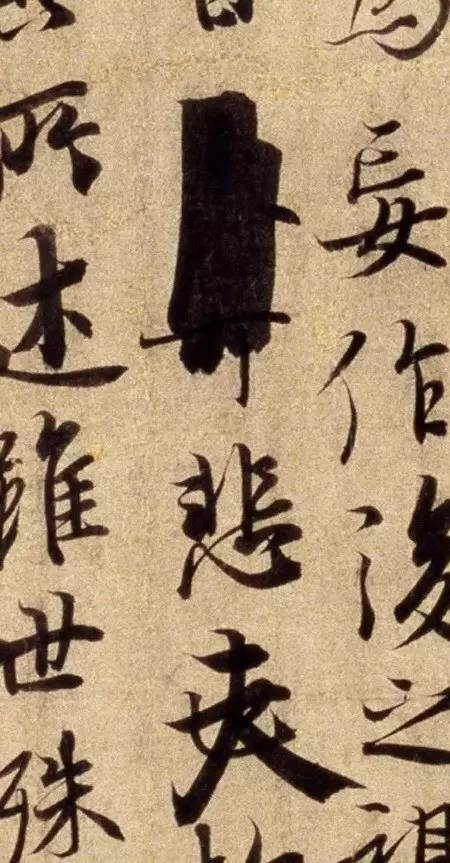 為妄作後之
悲夫
所述雖世殊